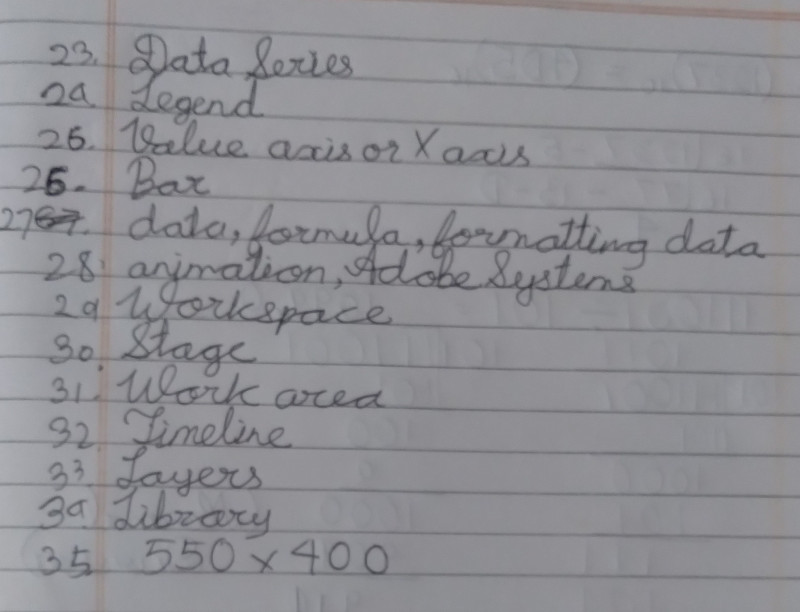 23. Data Series
24. Legend
25. Value axis or X axis
26. Bar
27. data, formula, formatting data
28. animation, Adobe Systems
29 Workspace
30. Stage
31. Work area
32 Timeline
33 Layers
34. Library
35 550 x 400